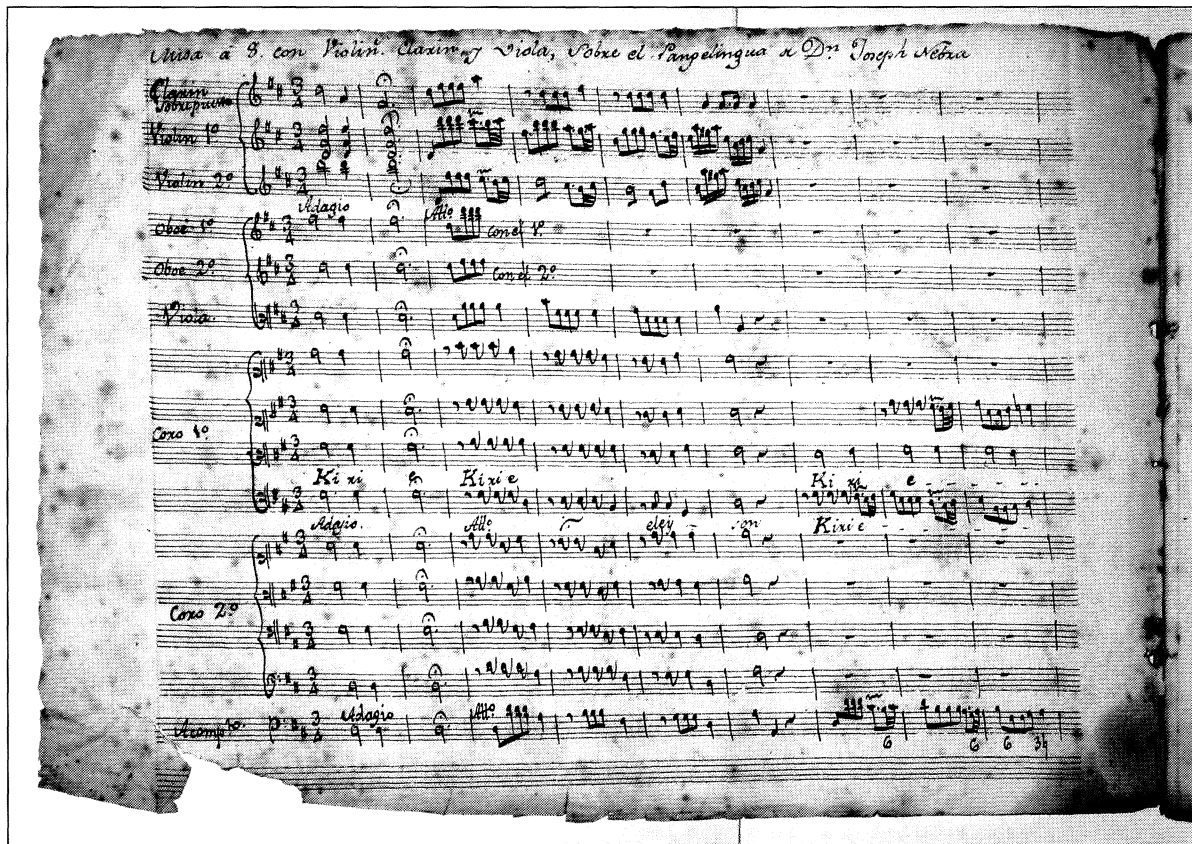 Missa â 8. con Violin.ˢ Clarin, y Viola, Sobre el Pangelingua de Dⁿ. Joseph Nebra
Clarin
Violin 1º
Violin 2º
Adagio
Allº
Oboe 1º
Con el 1º.
Oboe 2º
Con el 2º.
Viola.
Coro 1º.
Kiri e Kirie Ki ri e
Adagio. Allº eley son Kirie
Coro 2º
Adagio Allº
Acompto.
6 6 6